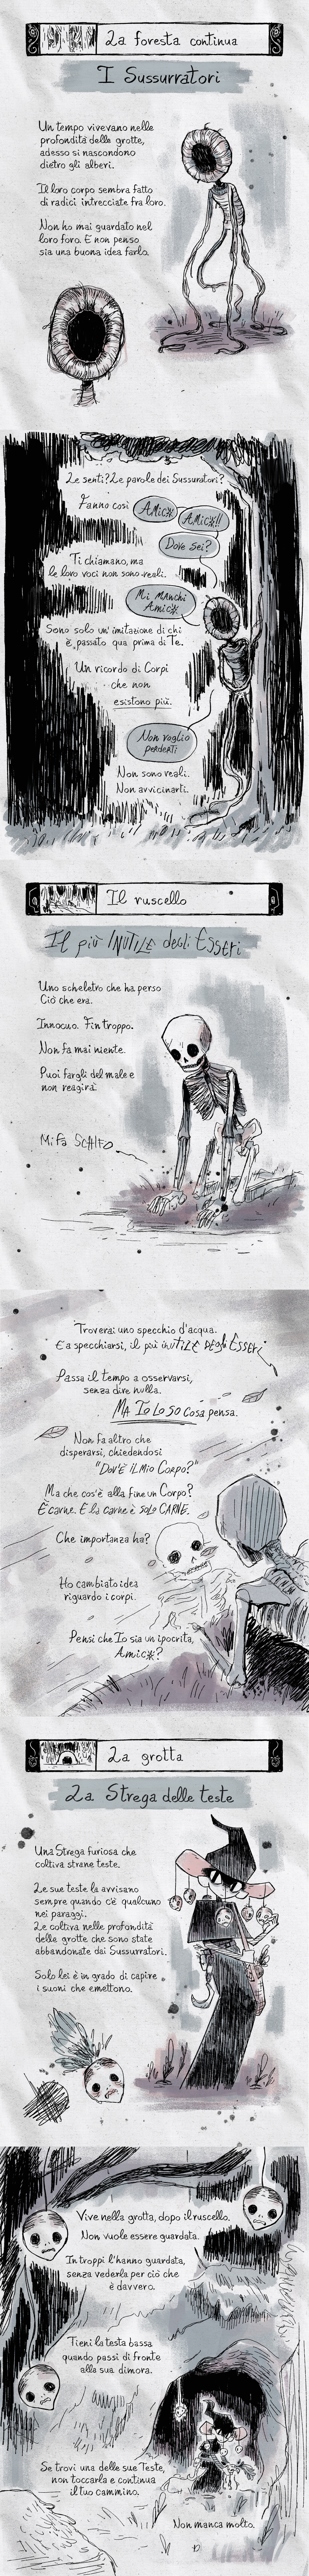 La foresta continua
I Sussurratori
Un tempo vivevano nelle
profondità delle grotte,
adesso si nascondono
dietro gli alberi.
Il loro corpo sembra fatto
di radici intrecciate fra loro.
Non ho mai guardato nel
loro foro. E non penso
sia una buona idea farlo.
Le senti? Le parole dei Sussuratori?
Fanno così
AMic*
AMic*!!
Dove sei?
Ti chiamano, ma
le loro voci non sono reali.
Mi MANchi
Amic*
Sono solo un'imitazione di chi
è passato qua prima di Te.
Un ricordo di Corpi
che non
esistono più.
Non voglio
perderti
Non sono reali.
Non avvicinarti.
Il ruscello
Il più INUTILE degli Esseri
Uno scheletro che ha perso
Ciò che era.
Innocuo. Fin troppo.
Non fa mai niente.
Puoi fargli del male e
non reagirà.
Mi fa SCHIFO
Troverai uno specchio d'acqua.
E a specchiarsi, il più iNUTILE DEgli ESSERi
Passa il tempo a osservarsi,
senza dire nulla.
MA Io LO SO cosa pensa.
Non fa altro che
disperarsi, chiedendosi
"Dov'È IL Mio Corpo?"
Ma che cos'è alla fine un Corpo?
È carne. E la carne è SOLO CARNE.
Che importanza ha?
Ho cambiato idea
riguardo i corpi.
Pensi che Io sia un ipocrita,
Amic*?
La grotta
La Strega delle teste
Una Strega furiosa che
coltiva strane teste.
Le sue teste la avvisano
sempre quando c'è qualcuno
nei paraggi.
Le coltiva nelle profondità
delle grotte che sono state
abbandonate dai Sussurratori.
Solo lei è in grado di capire
i suoni che emettono.
Vive nella grotta, dopo il ruscello.
Non vuole essere guardata.
In troppi l'hanno guardata,
senza vederla per ciò che
è davvero.
Tieni la testa bassa
quando passi di fronte
alla sua dimora.
Se trovi una delle sue Teste,
non toccarla e continua
il tuo cammino.
Non manca molto.